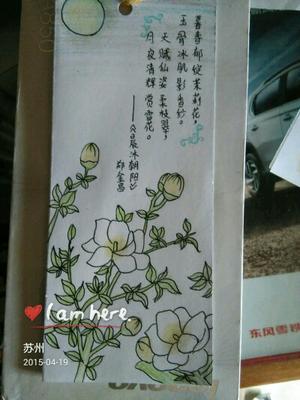 春春郁绽茉莉花，
玉骨冰肌影自纱。
天赋仙姿柔枝翠，
月夜清辉赏雪花。
——《晨冰朝阳》
郑金昌
I am here.
苏州
2015-04-19
东风雪铁